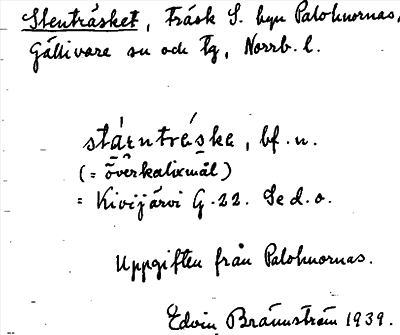 Stenträsket, träsk S. byn Palohuornas,
Gällivare sn och tg, Norrb. l.
stárnträ́ske, bf. n.
(= överkalixmål)
= Kivijärvi G. 22. Se d. o.
Uppgiften från Palohuornas.
Edvin Brännström 1939.